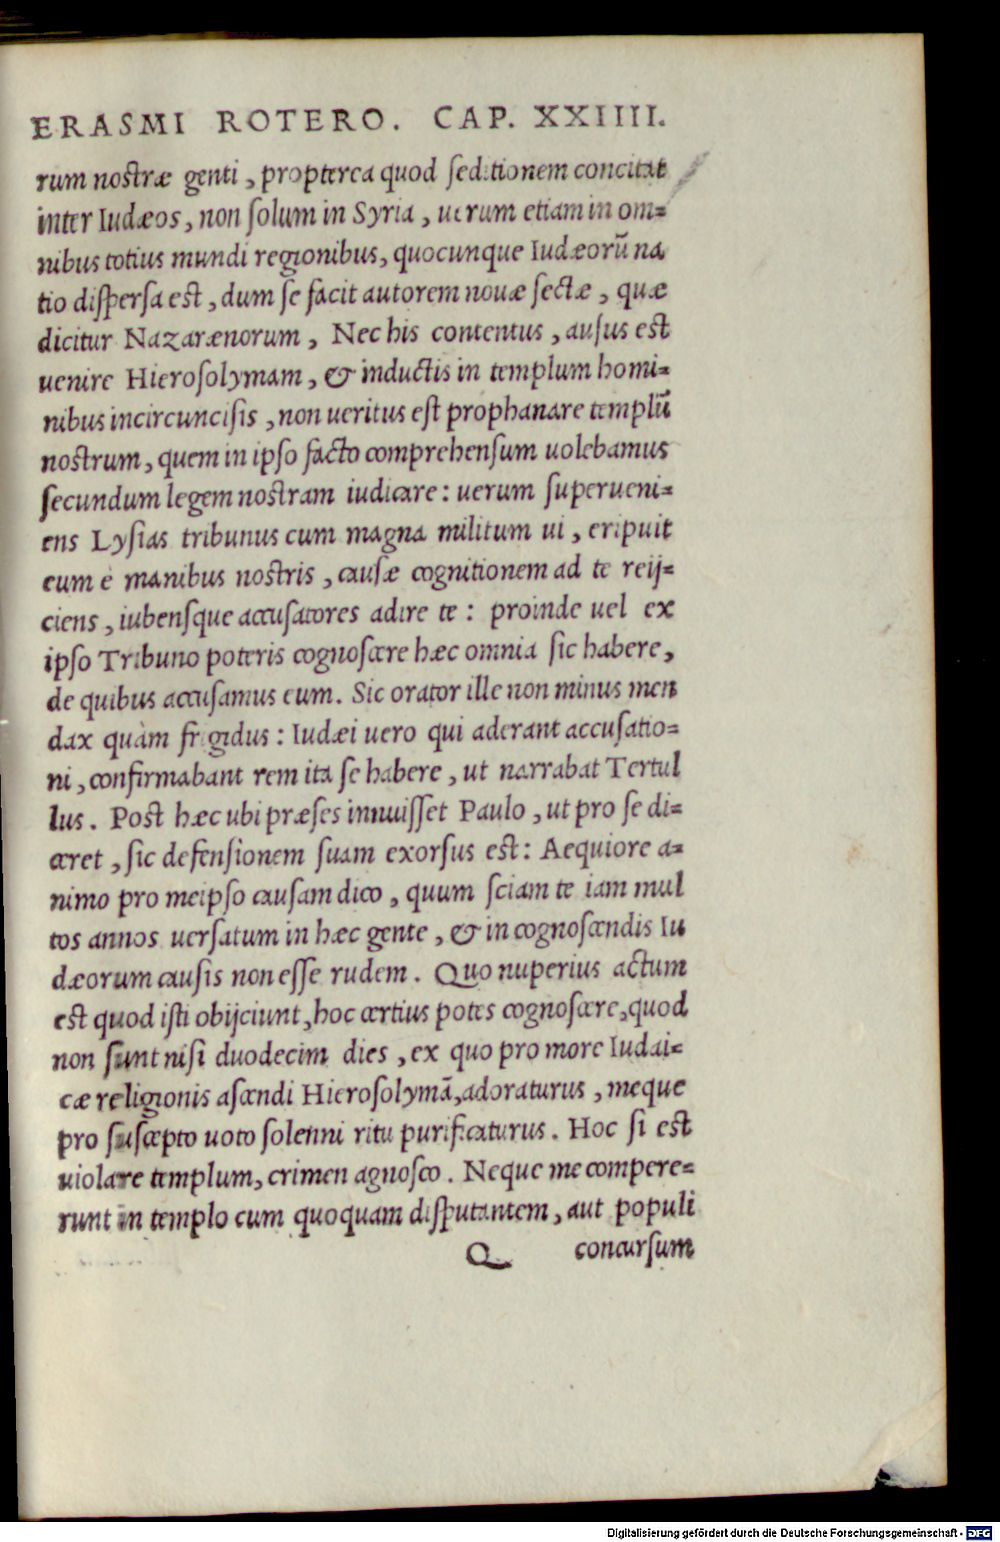 ERASMI ROTERO. CAP. XXIIII.
rum nostræ genti, propterea quod seditionem concitat
inter Iudæos, non solum in Syria, uerum etiam in om=
nibus totius mundi regionibus, quocunque Iudæorũ na
tio dispersa est, dum se facit autorem nouæ sectæ, quæ
dicitur Nazarænorum, Nec his contentus, ausus est
uenire Hierosolymam, & inductis in templum homi=
nibus incircuncisis, non ueritus est prophanare templũ
nostrum, quem in ipso facto comprehensum uolebamus
secundum legem nostram iudicare: uerum superueni=
ens Lysias tribunus cum magna militum ui, eripuit
eum è manibus nostris, causæ cognitionem ad te reij=
ciens, iubensque accusatores adire te: proinde uel ex
ipso Tribuno poteris cognoscere hæc omnia sic habere,
de quibus accusamus eum. Sic orator ille non minus men
dax quàm frigidus: Iudæi uero qui aderant accusatio=
ni, confirmabant rem ita se habere, ut narrabat Tertul
lus. Post hæc ubi præses innuisset Paulo, ut pro se di=
ceret, sic defensionem suam exorsus est: Aequiore a=
nimo pro meipso causam dico, quum sciam te iam mul
tos annos uersatum in hæc gente, & in cognoscendis Iu
dæorum causis non esse rudem. Quo nuperius actum
est quod isti obijciunt, hoc certius potes cognoscere, quod
non sunt nisi duodecim dies, ex quo pro more Iudai=
cæ religionis ascendi Hierosolymã, adoraturus, meque
pro suscepto uoto solenni ritu purificaturus. Hoc si est
uiolare templum, crimen agnosco. Neque me compere=
runt in templo cum quoquam disputantem, aut populi
Q concursum
Digitalisierung gefördert durch die Deutsche Forschungsgemeinschaft - DFG